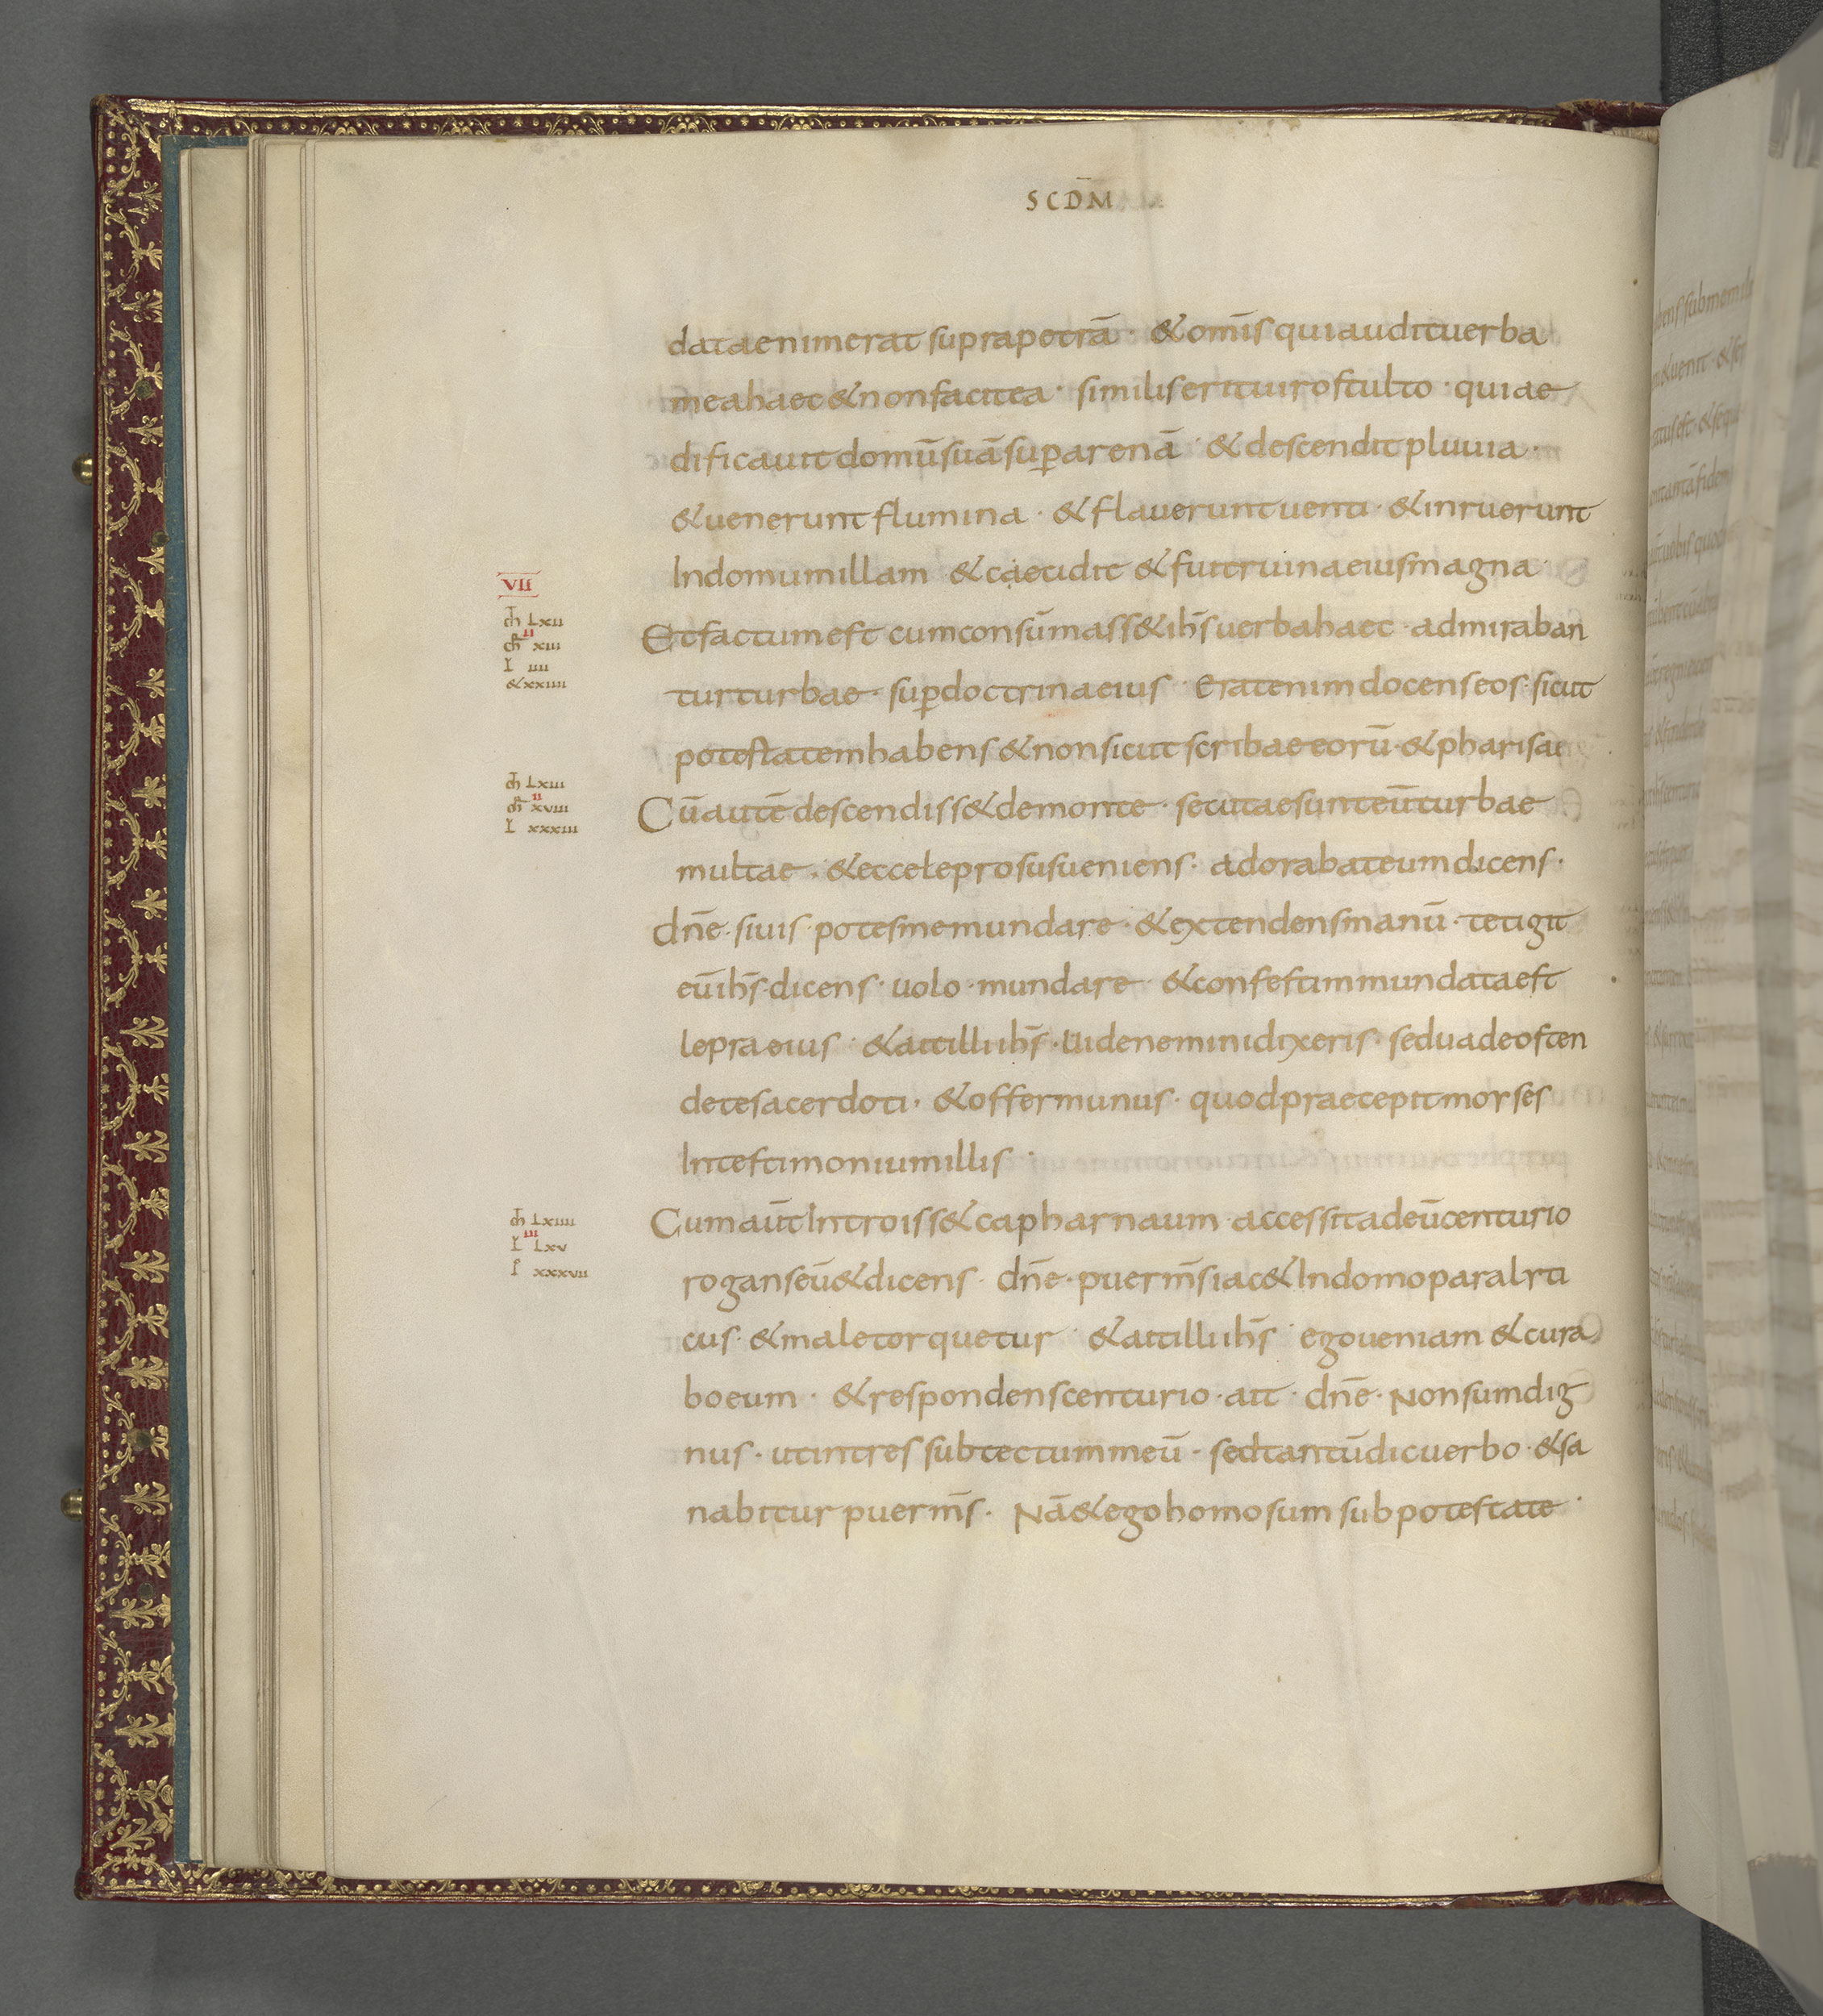 SCDM̄
data enim erat supra petrā · & om̄is qui audit uerba
mea haec & non facit ea · similis erit uiro stulto · qui ae
dificauit domū suā sup̄ arenā · & descendit pluuia ·
& uenerunt flumina · & flauerunt uenti · & inruerunt
In domum illam & caecidit & fuit ruina eius magna ·
VII
m̄ LXII
II
m̄r XIII
L IIII
& XXIIII
Et factum est cum consūmass& ih̄s uerba haec · admiraban
tur turbae · sup̄ doctrina eius · Erat enim docens eos · sicut
potestatem habens & non sicut scribae eorū · & pharisaei
m̄ LXIII
II
m̄r XVIII
L XXXIII
Cū autē descendiss& de monte · secutae sunt eū turbae
multae · & ecce leprosus ueniens · adorabat eum dicens ·
dn̄e · si uis · potes me mundare · & extendens manū · tetigit
eū ih̄s · dicens · uolo · mundare · & confestim mundata est
lepra eius · & ait illi ih̄s · Uide nemini dixeris · sed uade osten
de te sacerdoti · & offer munus · quod praecepit moyses
In testimonium illis ·
m̄ LXIIII
III
L LXV
I XXXVII
Cum aūt Introiss& capharnaum · accessit ad eū centurio
rogans eū & dicens · dn̄e · puer m̄s iac& In domo paralyti
cus · & male torquetur · & ait illi ih̄s · ego ueniam & cura
bo eum · & respondens centurio · ait · dn̄e · Non sum dig
nus · ut intres sub tectum meū · sed tantū dic uerbo · & sa
nabitur puer m̄s · Nā & ego homo sum sub potestate ·